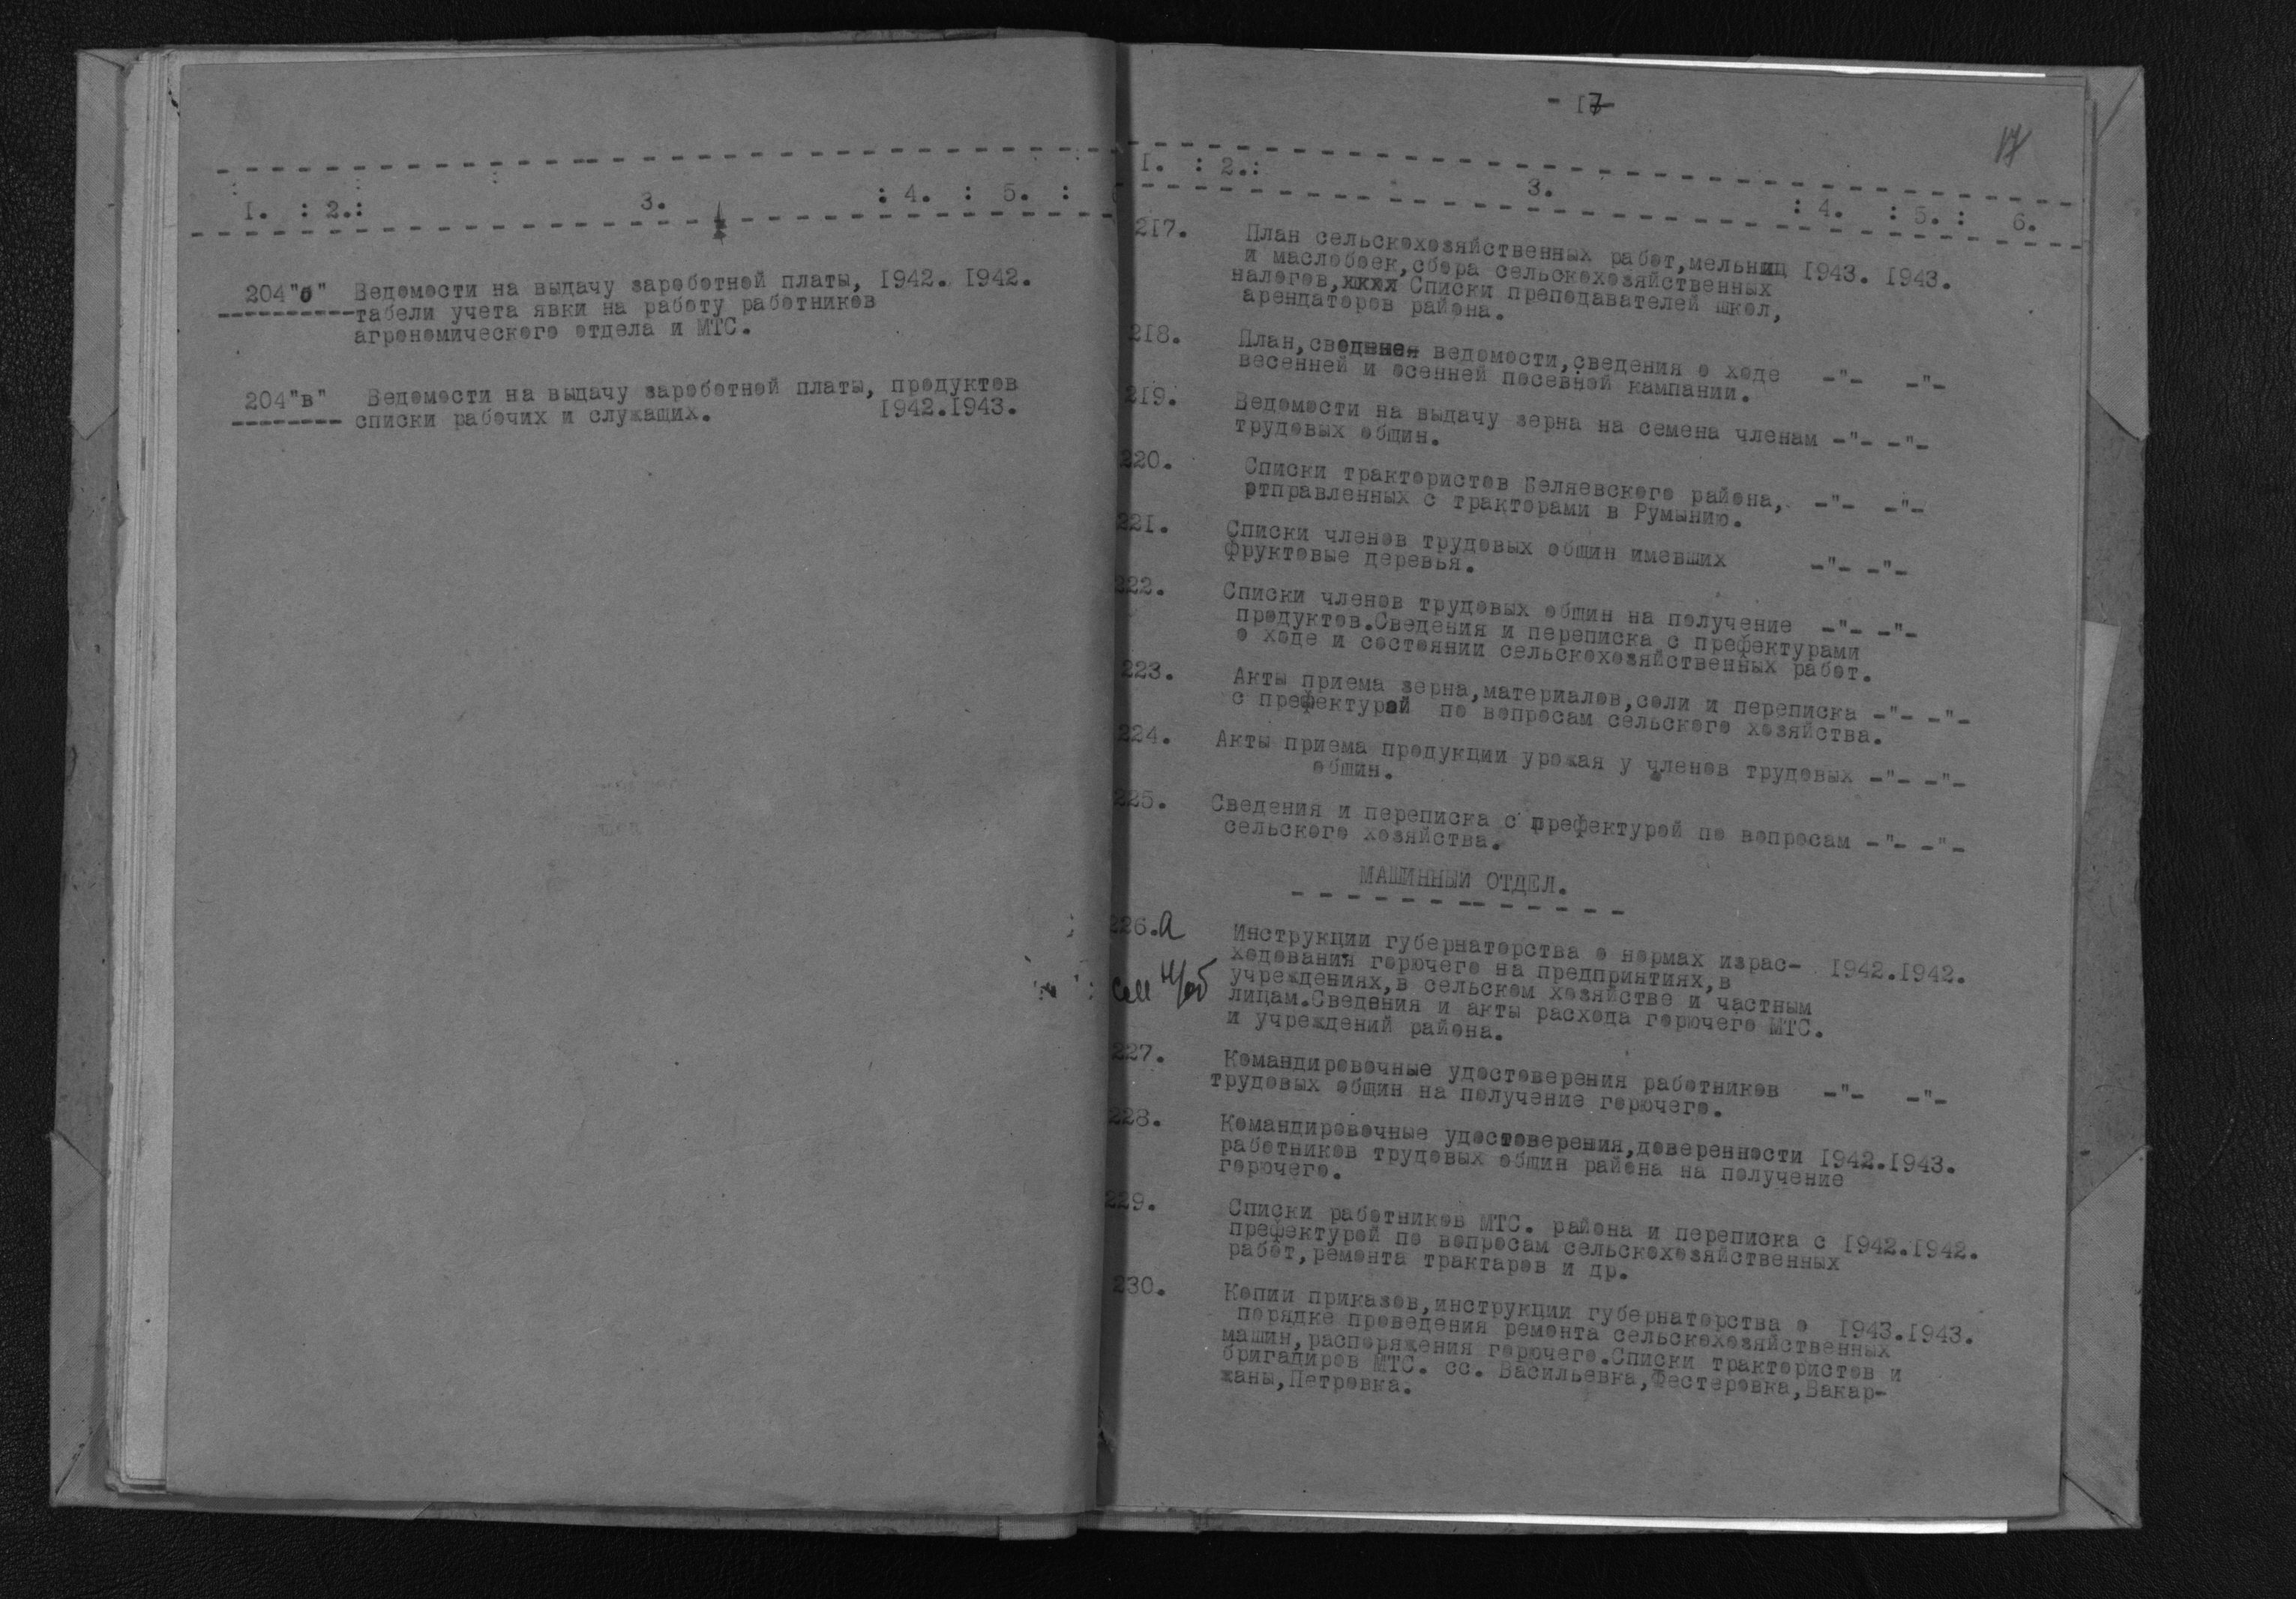 I. : 2.: 3. : 4. : 5. :
204"б" Ведомости на выдачу заработной платы, I942. I942.
табели учета явки на работу работников
агрономического отдела и МТС.
204"в" Ведомости на выдачу заработной платы, продуктов
списки рабочих и служащих. I942.I943.
- I7
17
I. : 2.: 3. : 4. : 5. : 6.
2I7. План сельскохозяйственных работ,мельниц I943. I943.
и маслобоек,сбора сельскохозяйственных
налогов, Списки преподавателей школ,
арендаторов района.
2I8. План, ведомости,сведения о ходе -"- -"-
весенней и осенней посевной кампании.
2I9. Ведомости на выдачу зерна на семена членам -"- -"-
трудовых общин.
220. Списки трактористов Беляевского района, -"- -"-
отправленных с тракторами в Румынию.
22I. Списки членов трудовых общин имевших -"- -"-
фруктовые деревья.
222. Списки членов трудовых общин на получение -"- -"-
продуктов.Сведения и переписка с префектурами
о ходе и состоянии сельскохозяйственных работ.
223. Акты приема зерна,материалов,соли и переписка -"- -"-
с префектурой по вопросам сельского хозяйства.
224. Акты приема продукции урожая у членов трудовых -"- -"-
общин.
225. Сведения и переписка с префектурой по вопросам -"- -"-
сельского хозяйства.
МАШИННЫЙ ОТДЕЛ.
226.а Инструкции губернаторства о нормах израс- I942.I942.
ходования горючего на предприятиях,в
учреждениях,в сельском хозяйстве и частным
лицам.Сведения и акты расхода горючего МТС.
и учреждений района.
227. Командировочные удостоверения работников -"- -"-
трудовых общин на получение горючего.
228. Командировочные удостоверения,доверенности I942.I943.
работников трудовых общин района на получение
горючего.
229. Списки работников МТС. района и переписка с I942.I942.
префектурой по вопросам сельскохозяйственных
работ,ремонта трактаров и др.
230. Копии приказов,инструкции губернаторства о I943.I943.
порядке проведения ремонта сельскохозяйственных
машин,распоряжения горючего.Списки трактористов и
бригадиров МТС. сс. Васильевка,Фестеровка,Вакар-
жаны,Петровка.